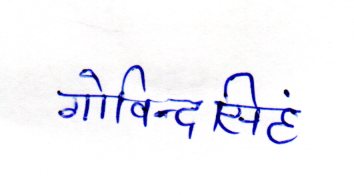 गोविन्द सिहं